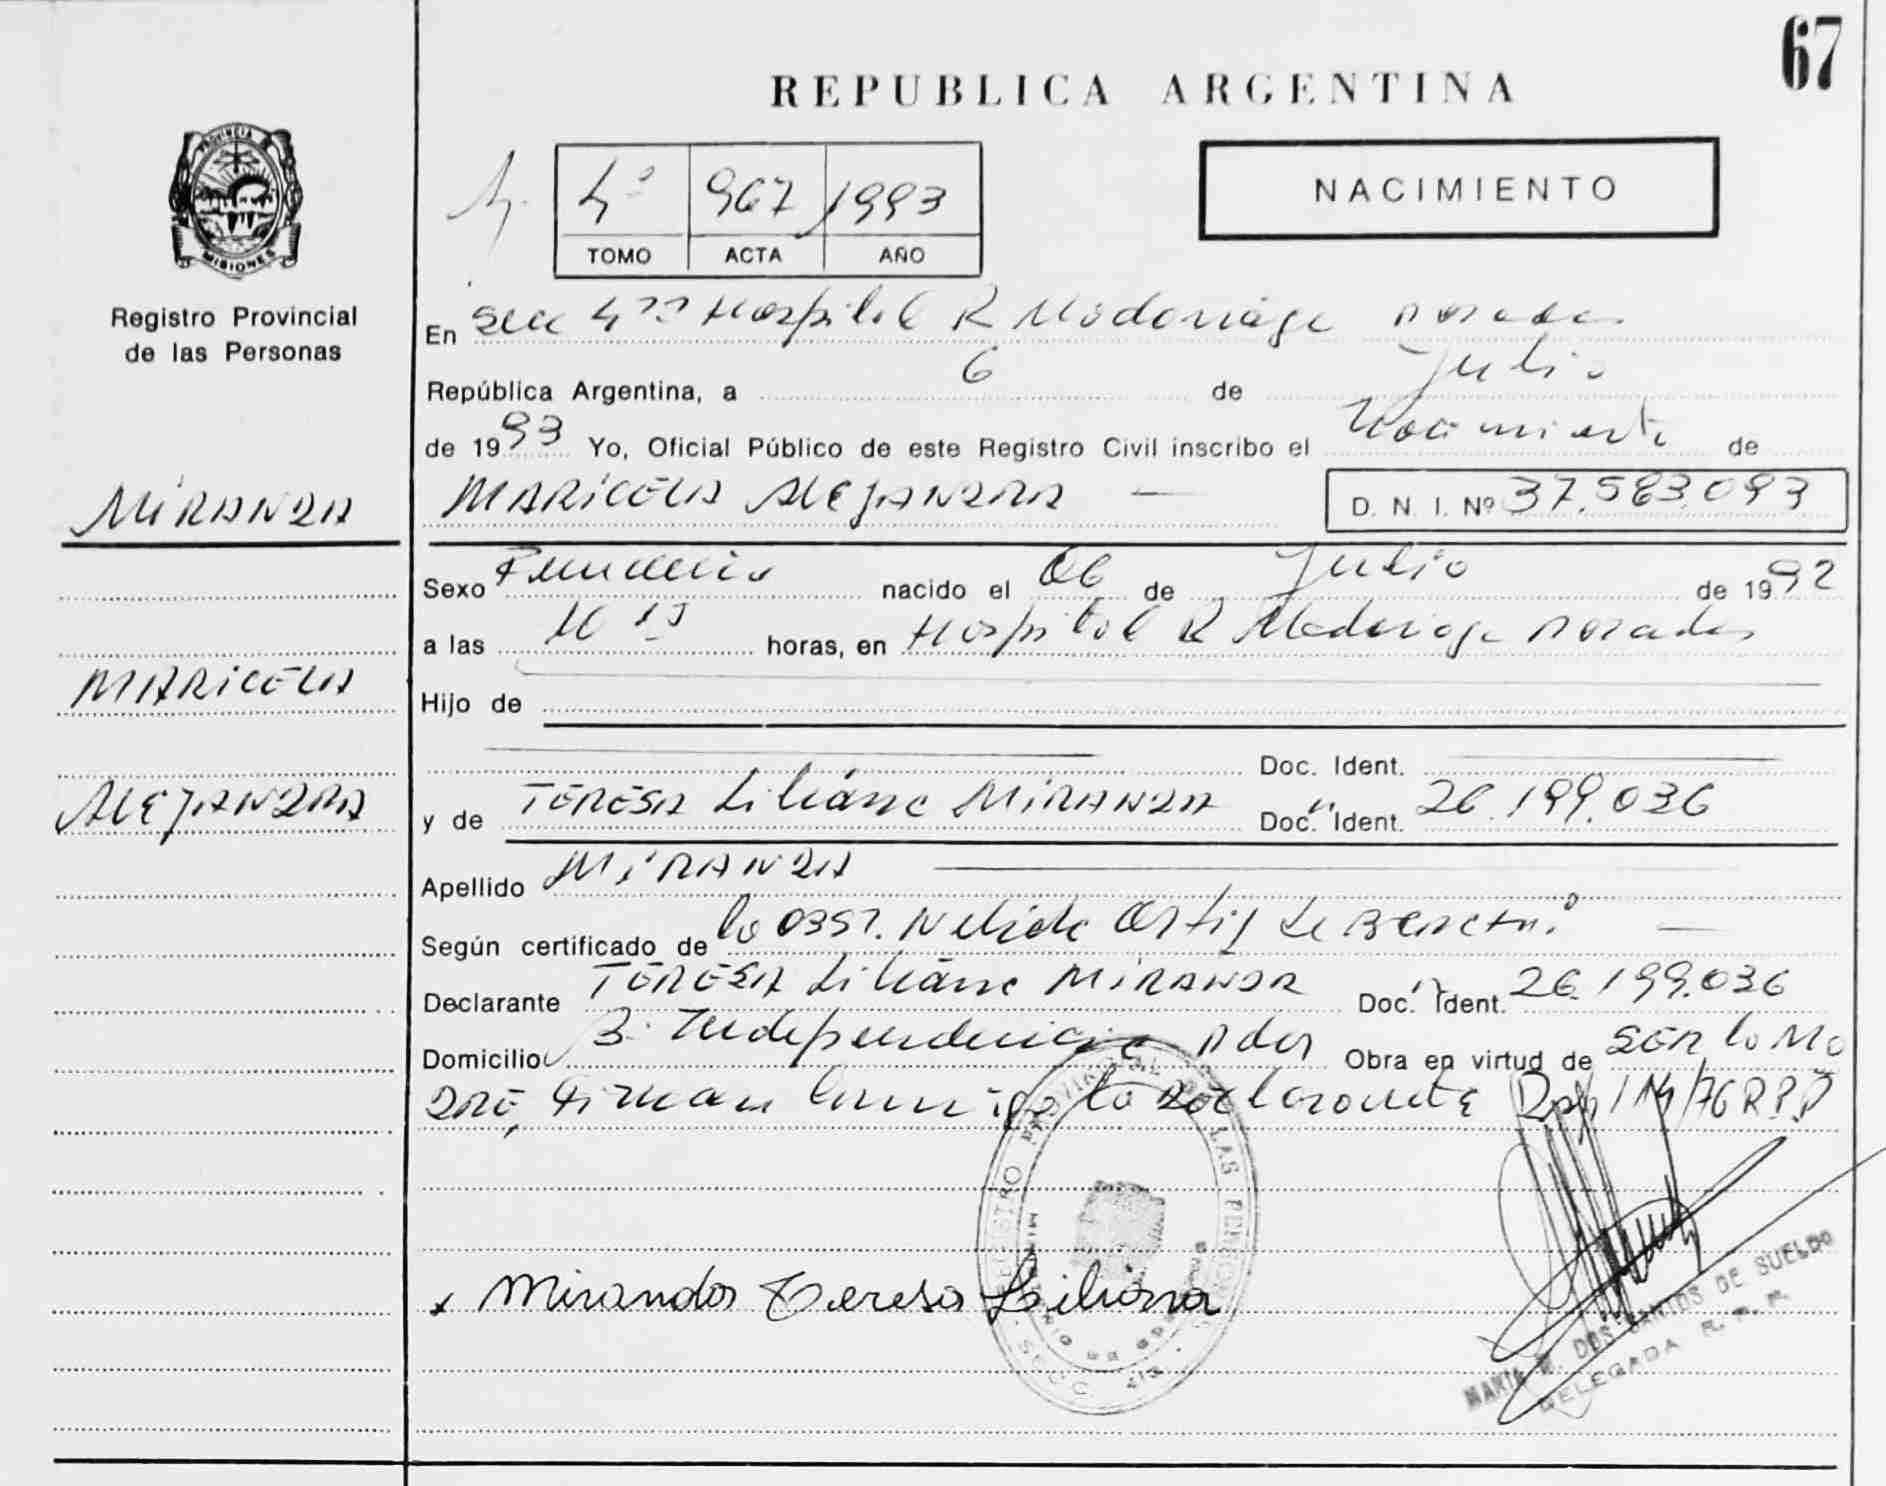 67
REPUBLICA ARGENTINA
PROVINCIA
MISIONES
4º 967 1993
TOMO ACTA AÑO
NACIMIENTO
Registro Provincial
de las Personas
En Hospital R Madariaga Posadas
República Argentina, a 6 de Julio
de 1993 Yo, Oficial Público de este Registro Civil inscribo el Nacimiento de
MIRANDA
MARICELA ALEJANDRA — D. N. I. Nº 37.583.093
Sexo Femenino nacido el 06 de Julio de 1992
a las horas, en Hospital R Madariaga Posadas
MARICELA
Hijo de
Doc. Ident.
ALEJANDRA
y de TERESA Liliana MIRANDA Doc. Ident. 26.199.036
Apellido MIRANDA
Según certificado de la OBST. Nelida Ortiz de
Declarante TERESA Liliana MIRANDA Doc. Ident. 26.199.036
Domicilio B. Independencia Pdas Obra en virtud de SER la MA
DRE, Firman conmigo la Declarante 114/76 R.P.P
x Miranda Teresa Liliana
REGISTRO PROVINCIAL DE LAS PERSONAS
MINISTERIO DE GOBIERNO
MARIA DOS SANTOS DE SUELDO
DELEGADA R. P. P.